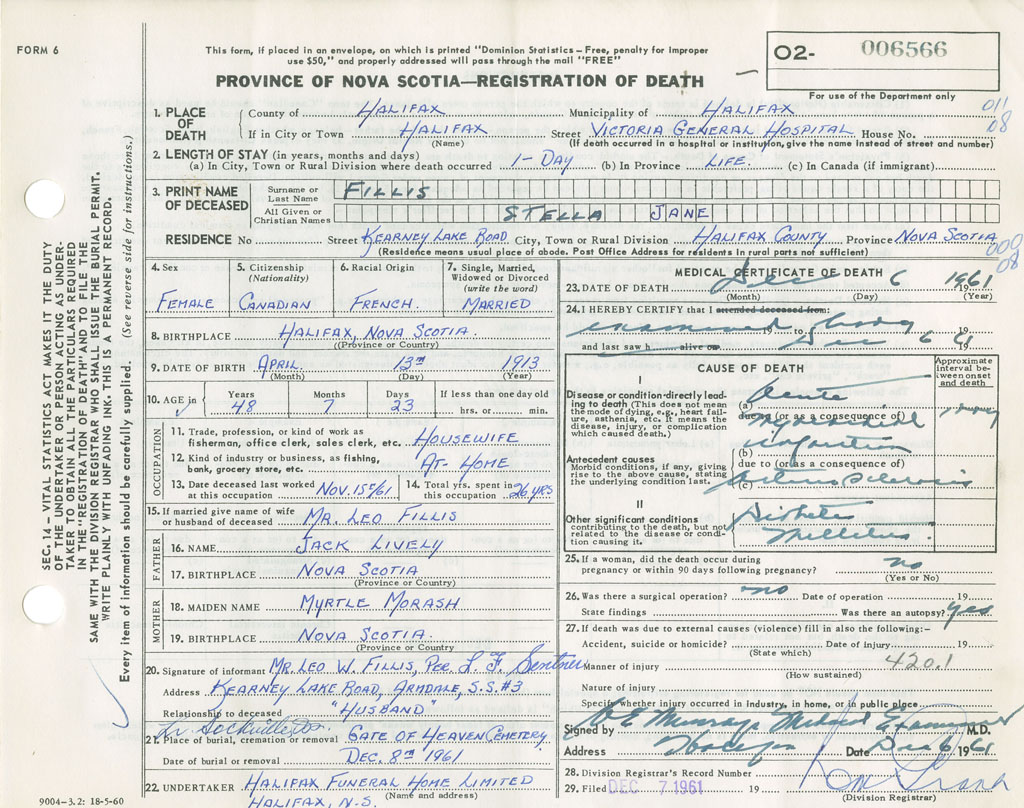 FORM 6
This form, if placed in an envelope, on which is printed "Dominion Statistics – Free, penalty for improper
use $50," and properly addressed will pass through the mail "FREE"
PROVINCE OF NOVA SCOTIA—REGISTRATION OF DEATH
O2- 006566
For use of the Department only
011
08
1. PLACE OF DEATH
County of HALIFAX Municipality of HALIFAX
If in City or Town HALIFAX Street VICTORIA GENERAL HOSPITAL House No.
(Name) (If death occurred in a hospital or institution, give the name instead of street and number)
2. LENGTH OF STAY (in years, months and days)
(a) In City, Town or Rural Division where death occurred 1-DAY (b) In Province LIFE. (c) In Canada (if immigrant)
3. PRINT NAME OF DECEASED
Surname or Last Name FILLIS
All Given or Christian Names STELLA JANE
RESIDENCE No Street KEARNEY LAKE ROAD City, Town or Rural Division HALIFAX COUNTY Province NOVA SCOTIA
(Residence means usual place of abode. Post Office Address for residents in rural parts not sufficient)
000
08
4. Sex
FEMALE
5. Citizenship
(Nationality)
CANADIAN
6. Racial Origin
FRENCH.
7. Single, Married,
Widowed or Divorced
(write the word)
MARRIED
8. BIRTHPLACE HALIFAX, NOVA SCOTIA.
(Province or Country)
9. DATE OF BIRTH APRIL 13TH 1913
(Month) (Day) (Year)
10. AGE in Years Months Days If less than one day old
48 7 23 hrs. or min.
OCCUPATION
11. Trade, profession, or kind of work as
fisherman, office clerk, sales clerk, etc. HOUSEWIFE
12. Kind of industry or business, as fishing,
bank, grocery store, etc. AT-HOME
13. Date deceased last worked
at this occupation NOV. 15/61
14. Total yrs. spent in
this occupation 26 YRS
15. If married give name of wife
or husband of deceased MR. LEO FILLIS
FATHER
16. NAME JACK LIVELY
17. BIRTHPLACE NOVA SCOTIA
(Province or Country)
MOTHER
18. MAIDEN NAME MYRTLE MORASH
19. BIRTHPLACE NOVA SCOTIA.
(Province or Country)
20. Signature of informant MR. LEO W. FILLIS, PER. L. F.
Address KEARNEY LAKE ROAD, ARMDALE, S.S. #3
Relationship to deceased "HUSBAND"
21. Place of burial, cremation or removal GATE OF HEAVEN CEMETERY
Date of burial or removal DEC. 8TH 1961
22. UNDERTAKER HALIFAX FUNERAL HOME LIMITED
(Name and address)
HALIFAX, N.S.
MEDICAL CERTIFICATE OF DEATH
23. DATE OF DEATH Dec 6 1961
(Month) (Day) (Year)
24. I HEREBY CERTIFY that I attended deceased from:
examined body to 19
and last saw h alive on Dec 6 61
CAUSE OF DEATH
Approximate interval between onset and death
I
Disease or condition directly leading to death (This does not mean the mode of dying, e.g., heart failure, asthenia, etc. It means the disease, injury, or complication which caused death.)
(a) Acute
due to (or as a consequence of)
myocardial
(b) infarction
Antecedent causes
Morbid conditions, if any, giving rise to the above cause, stating the underlying condition last.
due to (or as a consequence of)
(c) Arteriosclerosis
II
Other significant conditions contributing to the death, but not related to the disease or condition causing it.
Diabetes
Mellitus
25. If a woman, did the death occur during
pregnancy or within 90 days following pregnancy? no
(Yes or No)
26. Was there a surgical operation? no Date of operation 19
State findings Was there an autopsy? yes
27. If death was due to external causes (violence) fill in also the following:—
Accident, suicide or homicide? Date of injury 19
(State which)
Manner of injury 420.1
(How sustained)
Nature of injury
Specify whether injury occurred in Industry, in home, or in public place
Signed by Medical Examiner M.D.
Address Halifax Date Dec 6 1961
28. Division Registrar's Record Number
29. Filed DEC 7 1961 19
(Division Registrar)
SEC. 14 – VITAL STATISTICS ACT MAKES IT THE DUTY
OF THE UNDERTAKER OR PERSON ACTING AS UNDER-
TAKER TO OBTAIN ALL THE PARTICULARS REQUIRED
IN THE "REGISTRATION OF DEATH" AND TO FILE THE
SAME WITH THE DIVISION REGISTRAR WHO SHALL ISSUE THE BURIAL PERMIT.
WRITE PLAINLY WITH UNFADING INK. THIS IS A PERMANENT RECORD.
Every item of information should be carefully supplied. (See reverse side for instructions.)
9004–3.2: 18-5-60